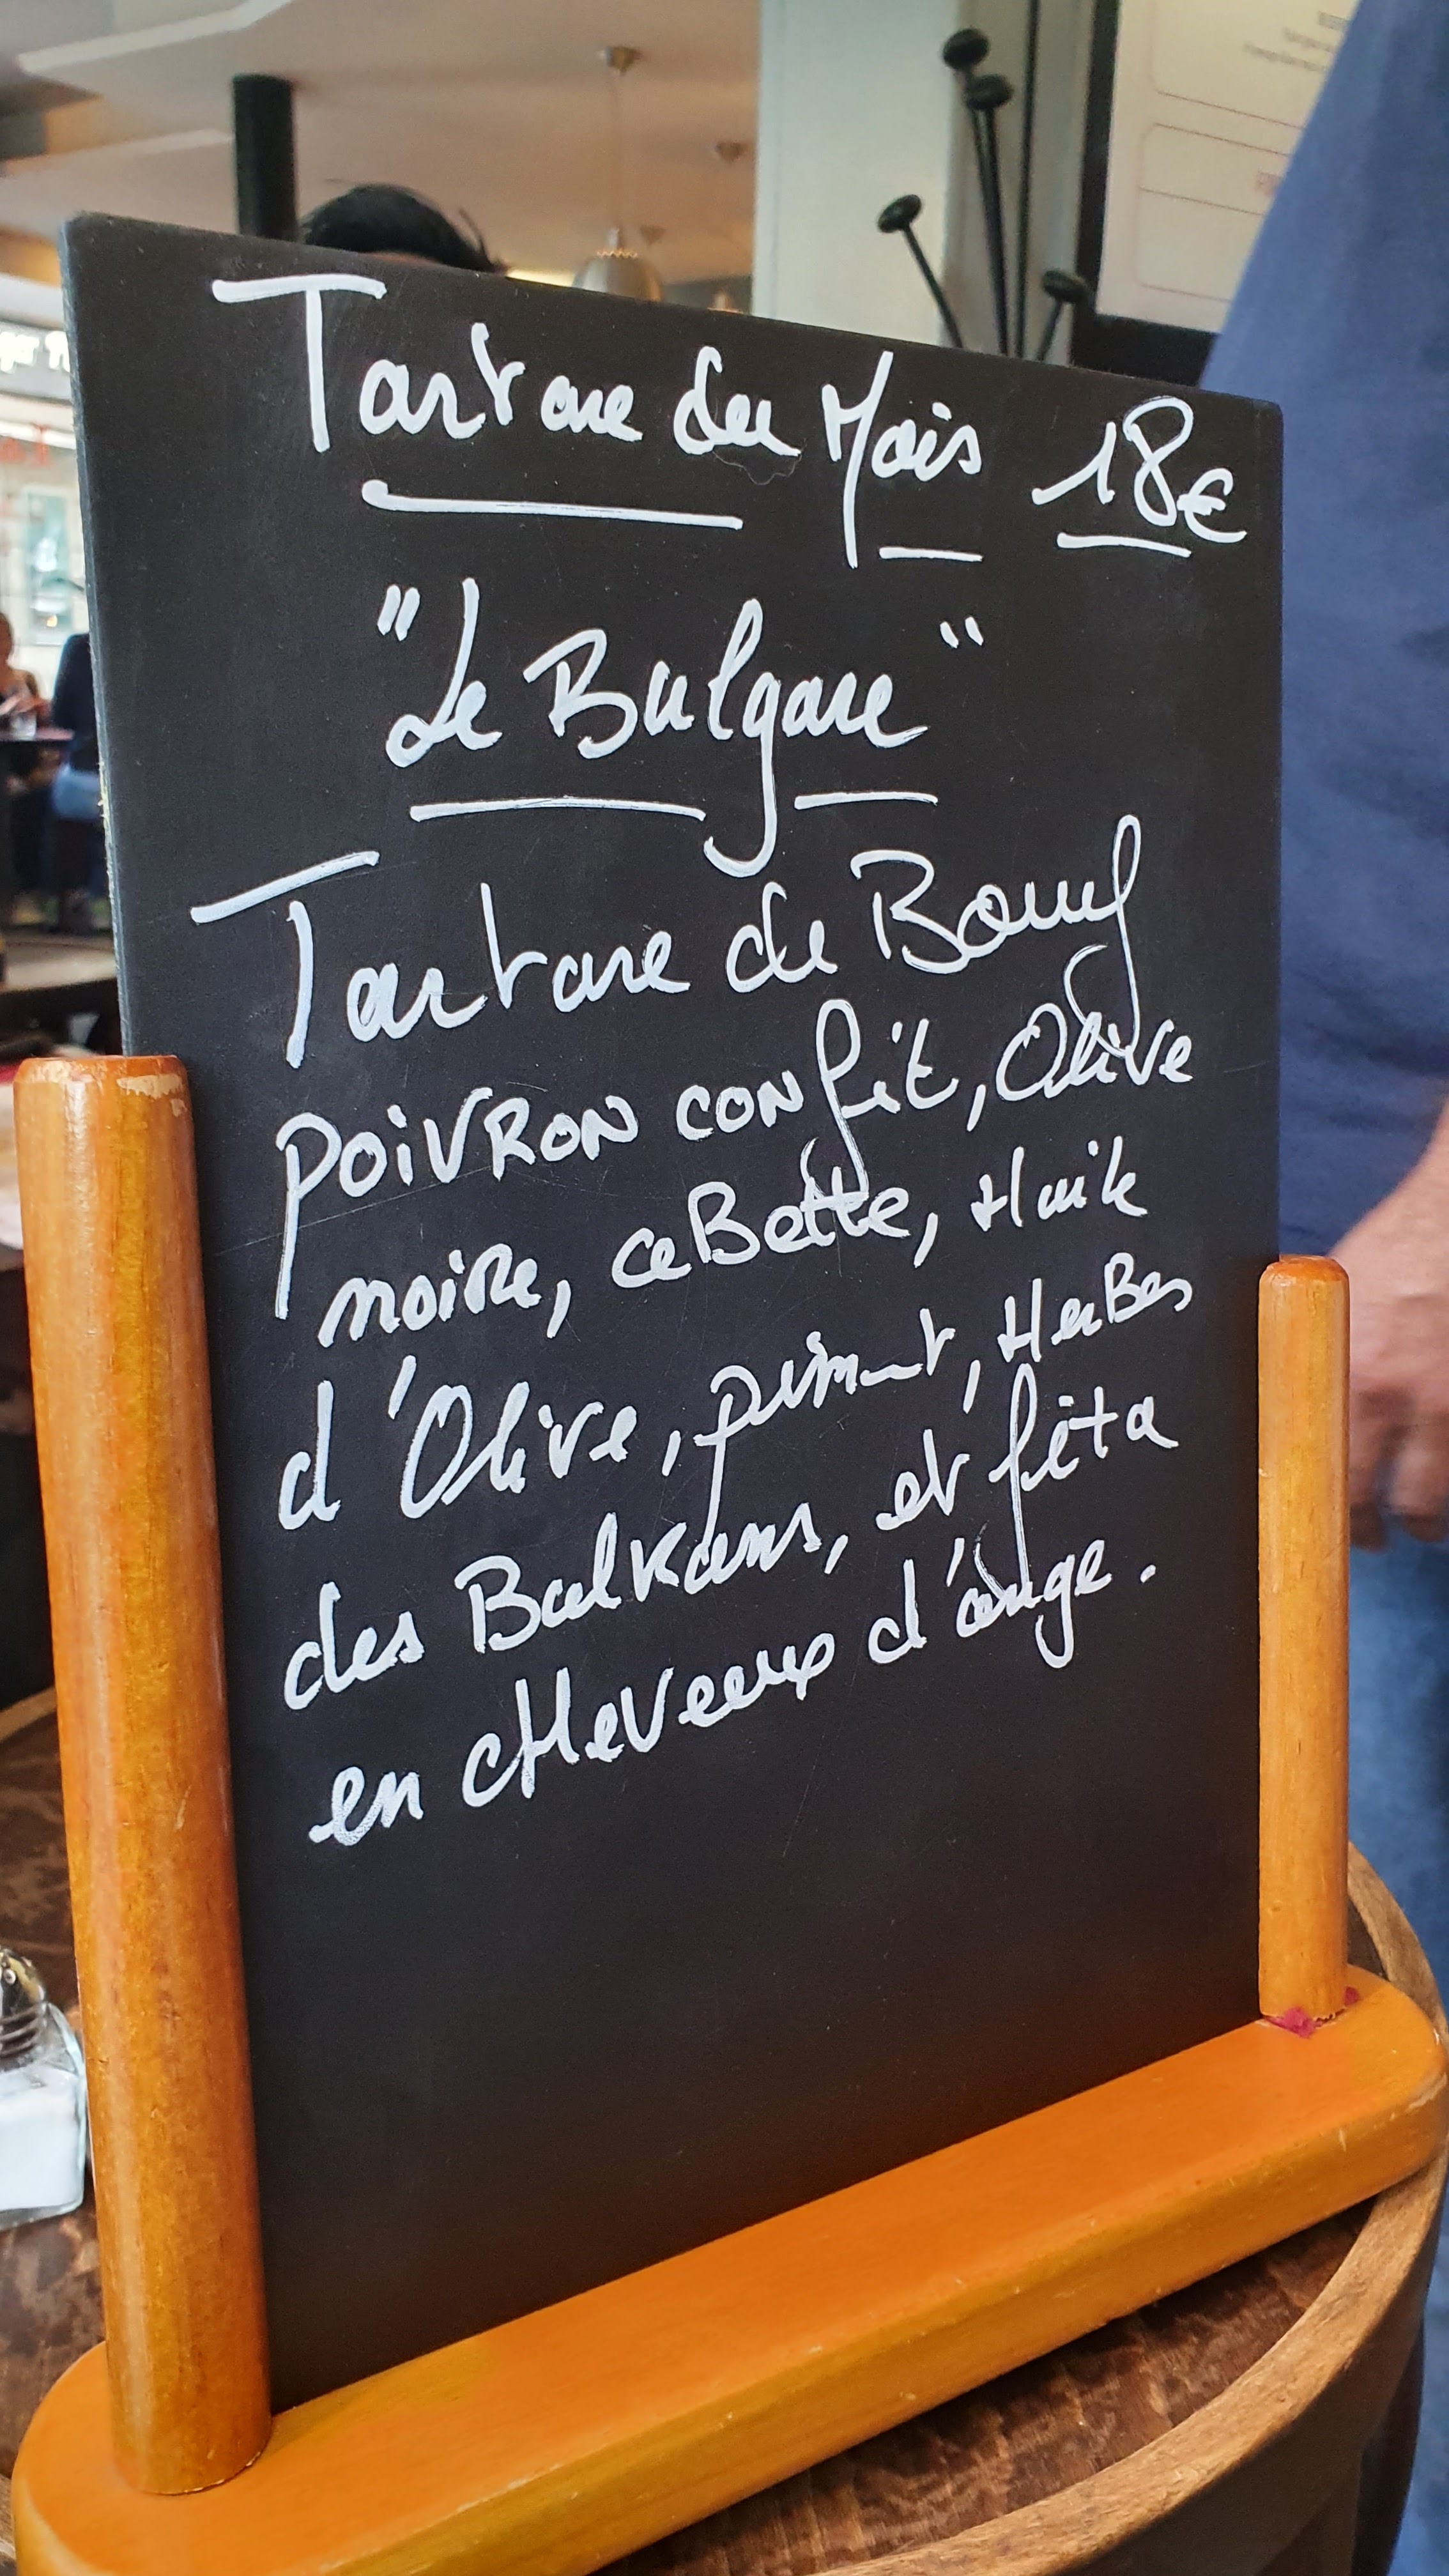 Tartare du Mois 18€
"Le Bulgare"
Tartare de Boeuf
POIVRON confit, Olive
noire, ceBette, Huile
d'Olive, piment, HerBes
des Balkans, et fêta
en cHeveux d'ange.